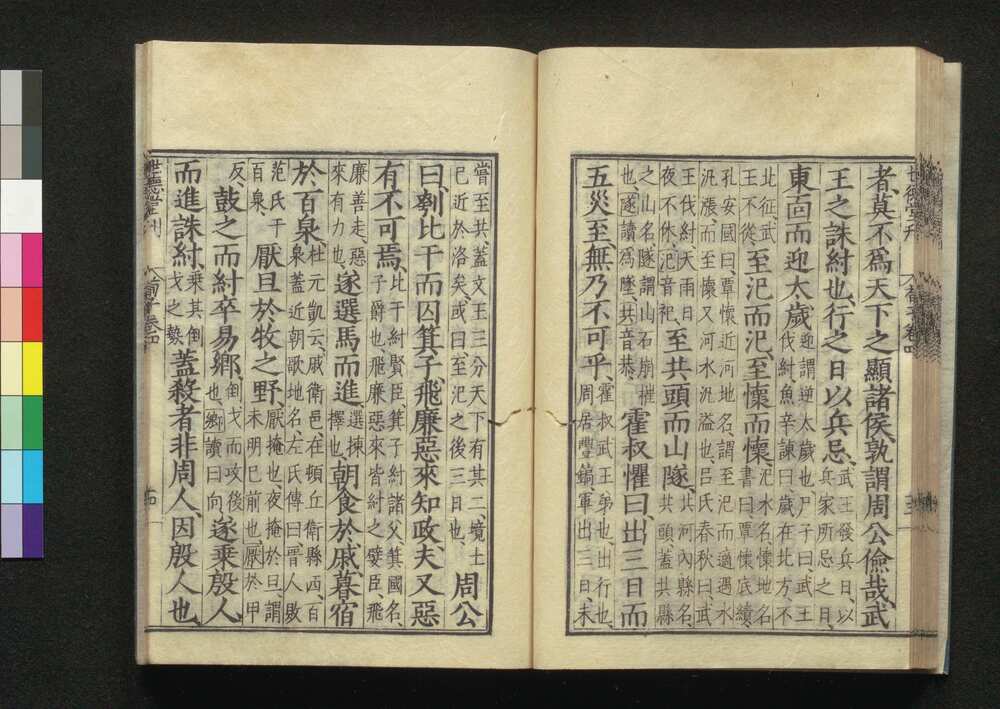 者莫不爲天下之顯諸侯孰謂周公儉哉武
王之誅紂也行之日以兵忌武王發兵日以兵家所忌之日
東面而迎太歲迎謂逆太歲也尸子曰武王伐紂魚辛諫曰歲在北方不
北征武王不從至汜而汜至懷而懷汜水名懷地名書曰覃懷底績
孔安國曰覃懷近河地名謂至汜而適遇水汎漲而至懷又河水汎溢也呂氏春秋曰武
王伐紂天雨日夜不休汜音祀至共頭而山隧共河內縣名共頭蓋共縣
之山名隧謂山石崩摧也隧讀爲墜共音恭霍叔懼曰出三日而
五災至無乃不可乎霍叔武王弟也出行也周居豐鎬軍出三日未
世德堂刊 荀子卷四
嘗至共蓋文王三分天下有其二境土已近於洛矣或曰至汜之後三日也周公
曰刳比干而囚箕子飛廉惡來知政夫又惡
有不可焉比干紂賢臣箕子紂諸父箕國名子爵也飛廉惡來皆紂之嬖臣飛
廉善走惡來有力也遂選馬而進選揀擇也朝食於戚暮宿
於百泉杜元凱云戚衛邑在頓丘衛縣西百泉蓋近朝歌地名左氏傳曰晉人敗
范氏于百泉厭旦於牧之野厭掩也夜掩於旦謂未明已前也厭於甲
反鼓之而紂卒易鄉倒戈而攻後也鄉讀曰向遂乘殷人
而進誅紂乘其倒戈之勢蓋殺者非周人因殷人也
世德堂刊 荀子卷四 十四